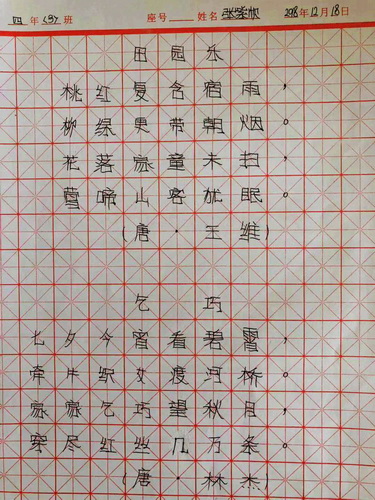 四年(3)班 座号 姓名 2018年12月18日
田园乐
桃红复含宿雨，
柳绿更带朝烟。
花落家童未扫，
莺啼山客犹眠。
(唐·王维)
乞巧
七夕今宵看碧霄，
牵牛织女渡河桥。
家家乞巧望秋月，
穿尽红丝几万条。
(唐·林杰)